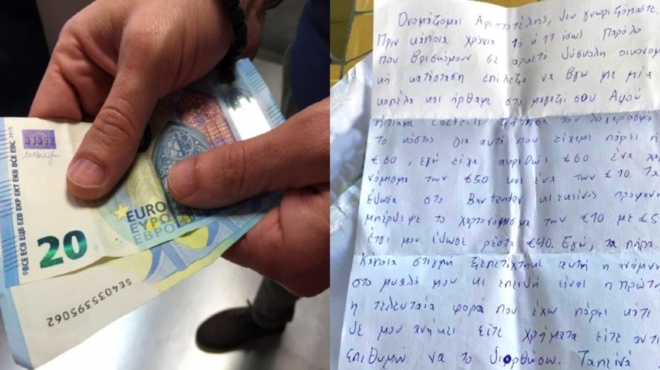 BCE ECB EZB EKP EKT EKB BCE EBC 2015
EURO
ΕΥΡΩ
ЕВРО
20
SE4035395062
Ονομάζομαι Αριστοτέλης, δεν γνωριζόμαστε.
Πριν κάποια χρόνια 10 ή 11 ίσως Παρόλο
που βρισκόμουν σε αρκετά δύσκολη οικονομ
κή κατάσταση επέλεξα να βγω με μία
κοπέλα και ήρθαμε στο μαγαζί σου Αφού
ήπιαμε cocktails ζήτησα τον λογαριασμό
Το κόστος για αυτά που είχαμε πάρει ή
€60, εγώ είχα ακριβώς €60 ένα χα
νόμισμα των €50 και ένα των €10. Τα
έδωσα στο Bartender και εκείνος προφαν
μπέρδεψε το χαρτονόμισμα των €10 με €5
έτσι μου έδωσε ρέστα €40. Εγώ, τα πήρα.
Κάποια στιγμή ξεπετάχτηκε αυτή η ανάμν
στο μυαλό μου και επειδή είναι η πρώτη
η τελευταία φορά που έχω πάρει κάτι
δε μου ανήκει είτε χρήματα είτε αντι
επιθυμώ να το διορθώσω. Ταπεινά